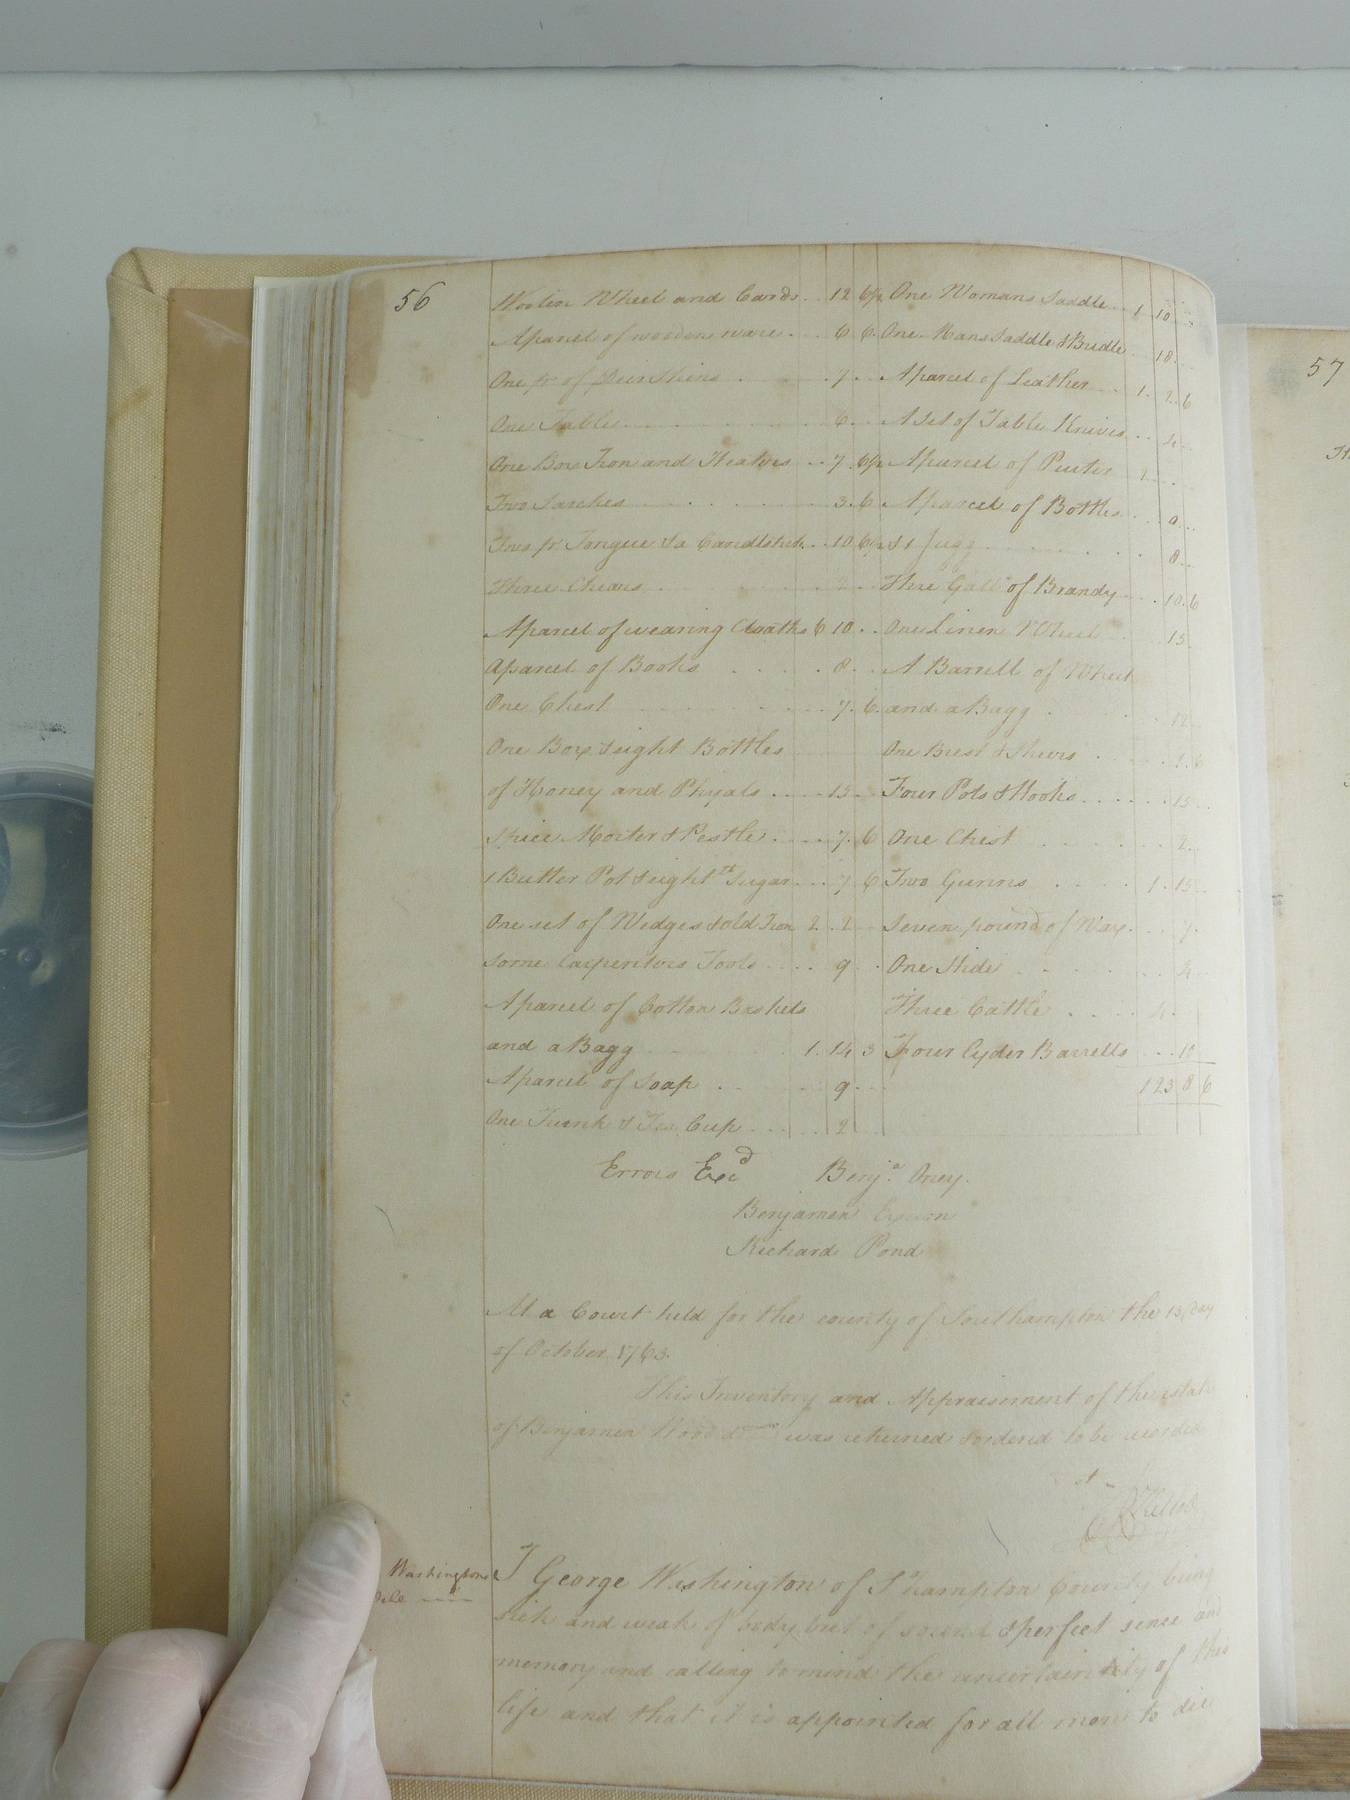 56
Woolen Wheel and Cards . . 12 6½
Aparcel of wooden ware . . 6 6
One pr of Deer Skins . . 7 . .
One Table . . 6 . .
One Box Iron and Heaters . . 7 6½
Two Sarches . . 3 . 6
Two pr Tongue &a Candlestick . . 10 6½
Three Chears . . 2 . .
Aparcel of wearing Cloaths 6 10 . .
Aparcel of Books . . 8 . .
One Chest . . 7 . 6
One Box & eight Bottles
of Honey and Phyals . . . . 15 . .
Spice Morter & Pestle . . 7 . 6
1 Butter Pot & eight Sugar . . 7 6
One set of Wedges & old Iron 2 . 2
Some Carpenters Tools . . . . 9 . .
Aparcel of Cotton Baskets
and a Bagg 1 . 14 3
Aparcel of Soap . . 9 . .
One Trunk & Tea Cup . . . . 2
One Womans Saddle 1 10
One Mans Saddle & Bridle 18
Aparcel of Leather 1 . 2 . 6
A Set of Table Knives . . 4
Aparcel of Pewter
Aparcel of Bottles
Jugg 8
Three Galls of Brandy . . 10 . 6
One Linen Wheel 15
A Barrell of Wheat
and a Bagg . 12
One & Shears
Four Pots & Hooks . . . . 15
One Chest 2
Two Gunns . . . . 1 . 15
Seven pound of Wax . . . . 7
One Hide
Three Cattle . . . . 4
Four Cyder Barrells . . . 10
123 8 6
Errors Exd Benja. Oney.
Benjamen
Richard Pond
At a Court held for the county of Southampton the 13 day
of October 1763.
This Inventory and Appraisement of the estate
of Benjamen Wood decd was returned & ordered to be recorded
Washingtons
I George Washington of S°hampton County being
sick and weak of body but of sound & perfect sence and
memory and calling to mind the uncertainity of this
life and that it is appointed for all men to die
57